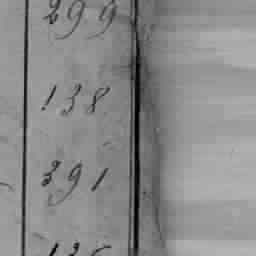 299
138
391